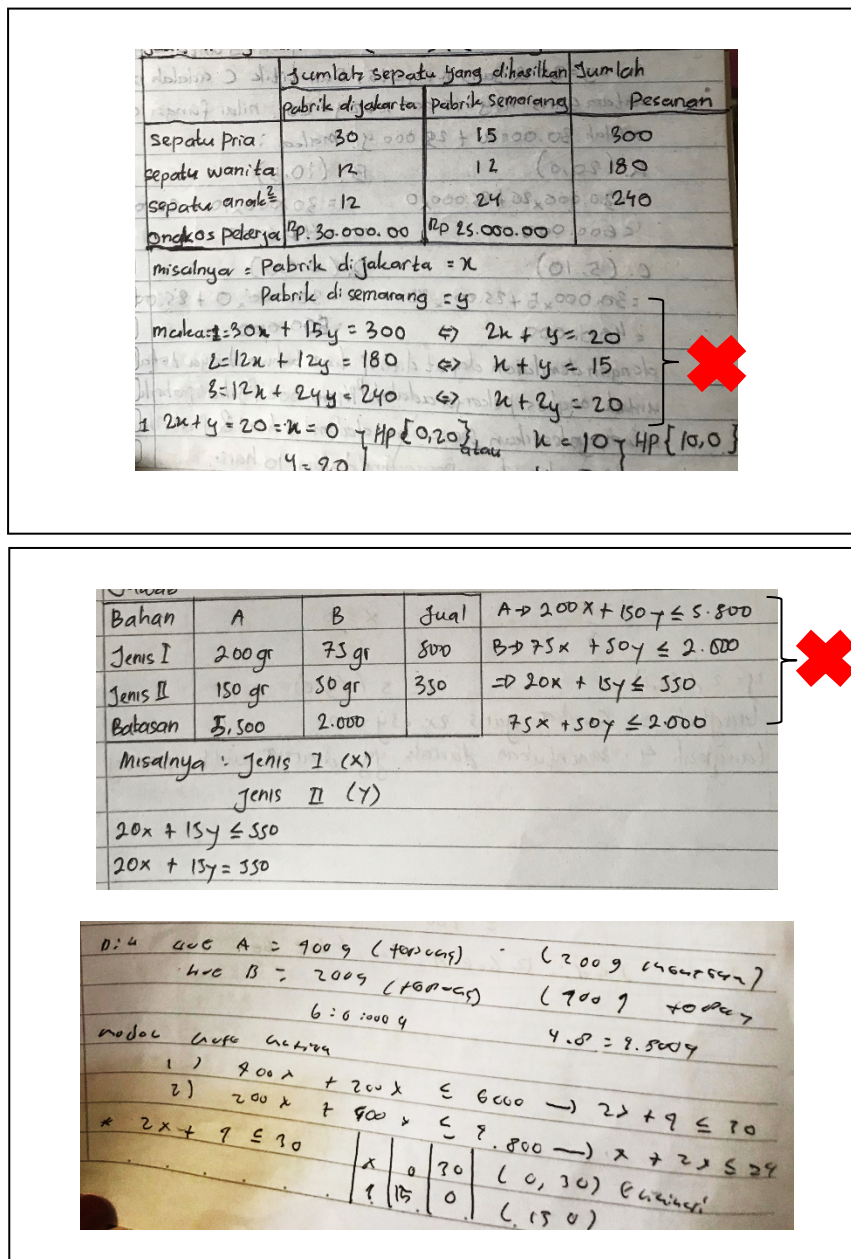 Jumlah sepatu yang dihasilkan Jumlah
Pabrik dijakarta Pabrik Semarang Pesanan
Sepatu Pria 30 15 300
sepatu wanita 12 12 180
sepatu anak² 12 24 240
Ongkos Pekerja Rp. 30.000.00 Rp 25.000.00
misalnya = Pabrik di jakarta = x
Pabrik di semarang = y
maka = 1 = 30x + 15y = 300 ⇔ 2x + y = 20
2 = 12x + 12y = 180 ⇔ x + y = 15
3 = 12x + 24y = 240 ⇔ x + 2y = 20
1 2x + y = 20 = x = 0 HP {0,20} atau x = 10 HP {10,0}
y = 20
Jawab
Bahan A B Jual A → 200x + 150y ≤ 5.800
Jenis I 200 gr 75 gr 800 B → 75x + 50y ≤ 2.000
Jenis II 150 gr 50 gr 350 ⇒ 20x + 15y ≤ 550
Batasan 5,500 2.000 75x + 50y ≤ 2.000
Misalnya : Jenis I (X)
Jenis II (Y)
20x + 15y ≤ 550
20x + 15y = 550
Dik kue A = 400 g (tepung) - (200 g
kue B = 200 g (tepung) (400 g
6 = 6.000 g 4.8 = 4.800 g
1) 400x + 200x ≤ 6000 → 2x + y ≤ 30
2) 200x + 400x ≤ 4.800 → x + 2x ≤ 24
* 2x + y ≤ 30
x 0 30 (0, 30)
y 15 0 (15 0)